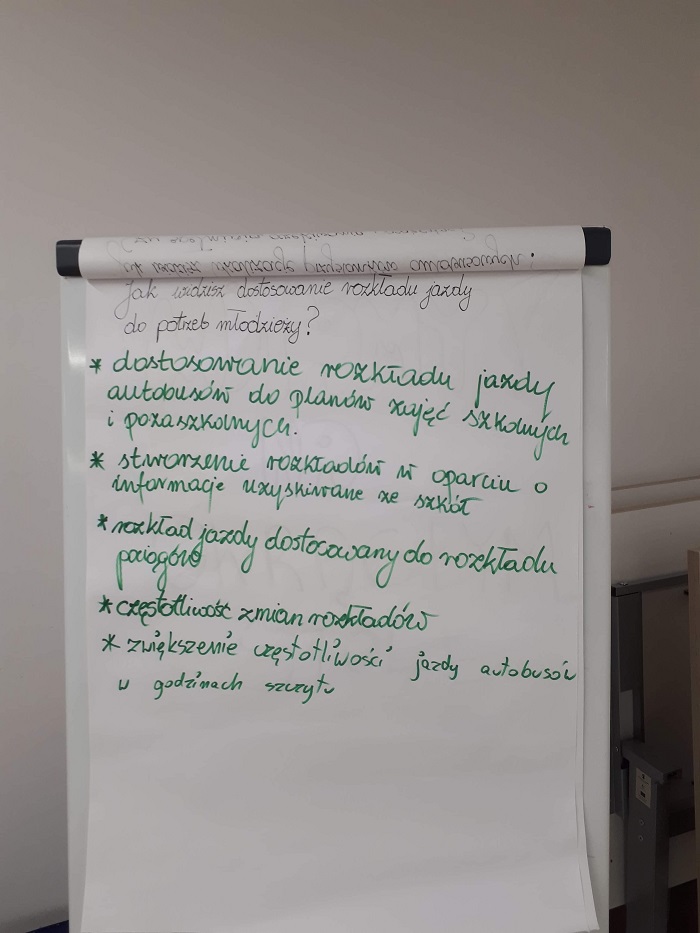 Jak widzisz dostosowanie rozkładu jazdy
do potrzeb młodzieży?
* dostosowanie rozkładu jazdy
autobusów do planów zajęć szkolnych
i pozaszkolnych.
* stworzenie rozkładów w oparciu o
informacje uzyskiwane ze szkół
* rozkład jazdy dostosowany do rozkładu
pociągów
* częstotliwość zmian rozkładów
* zwiększenie częstotliwości jazdy autobusów
w godzinach szczytu